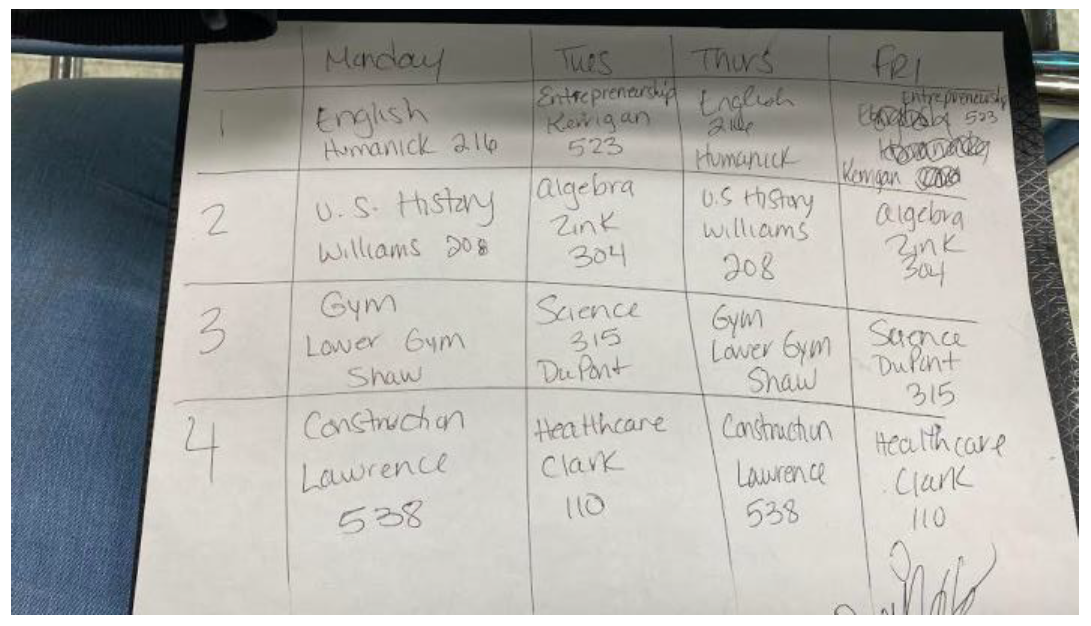 Monday Tues Thurs FRI
1
English
Humanick 216
Entrepreneurship
Kerrigan
523
English
216
Humanick
Entrepreneurship
523
Kerrigan
2
U.S. History
Williams 208
algebra
Zink
304
U.S History
Williams
208
algebra
Zink
304
3
Gym
Lower Gym
Shaw
Science
315
DuPont
Gym
Lower Gym
Shaw
Science
DuPont
315
4
Construction
Lawrence
538
Healthcare
Clark
110
Construction
Lawrence
538
Healthcare
Clark
110